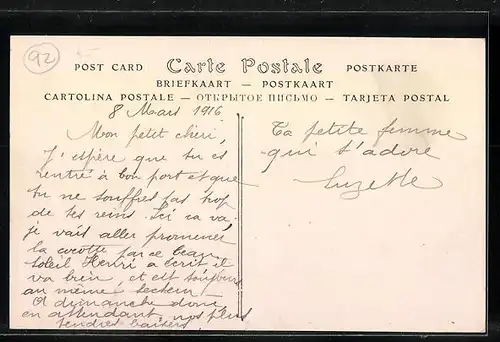 92
POST CARD Carte Postale POSTKARTE
BRIEFKAART — POSTKAART
CARTOLINA POSTALE — ОТКРЫТОЕ ПИСЬМО — TARJETA POSTAL
8 Mars 1916
Mon petit chéri,
J'espère que tu es
rentré à bon port et que
tu ne souffres pas trop
de tes reins. Ici ça va.
je vais aller promener
la cocotte par ce beau
soleil Henri a écrit et
va bien, et est toujours
au même secteur —
A dimanche donc,
en attendant, nos plus
tendres baisers,
Ta petite femme
qui t'adore
Suzette